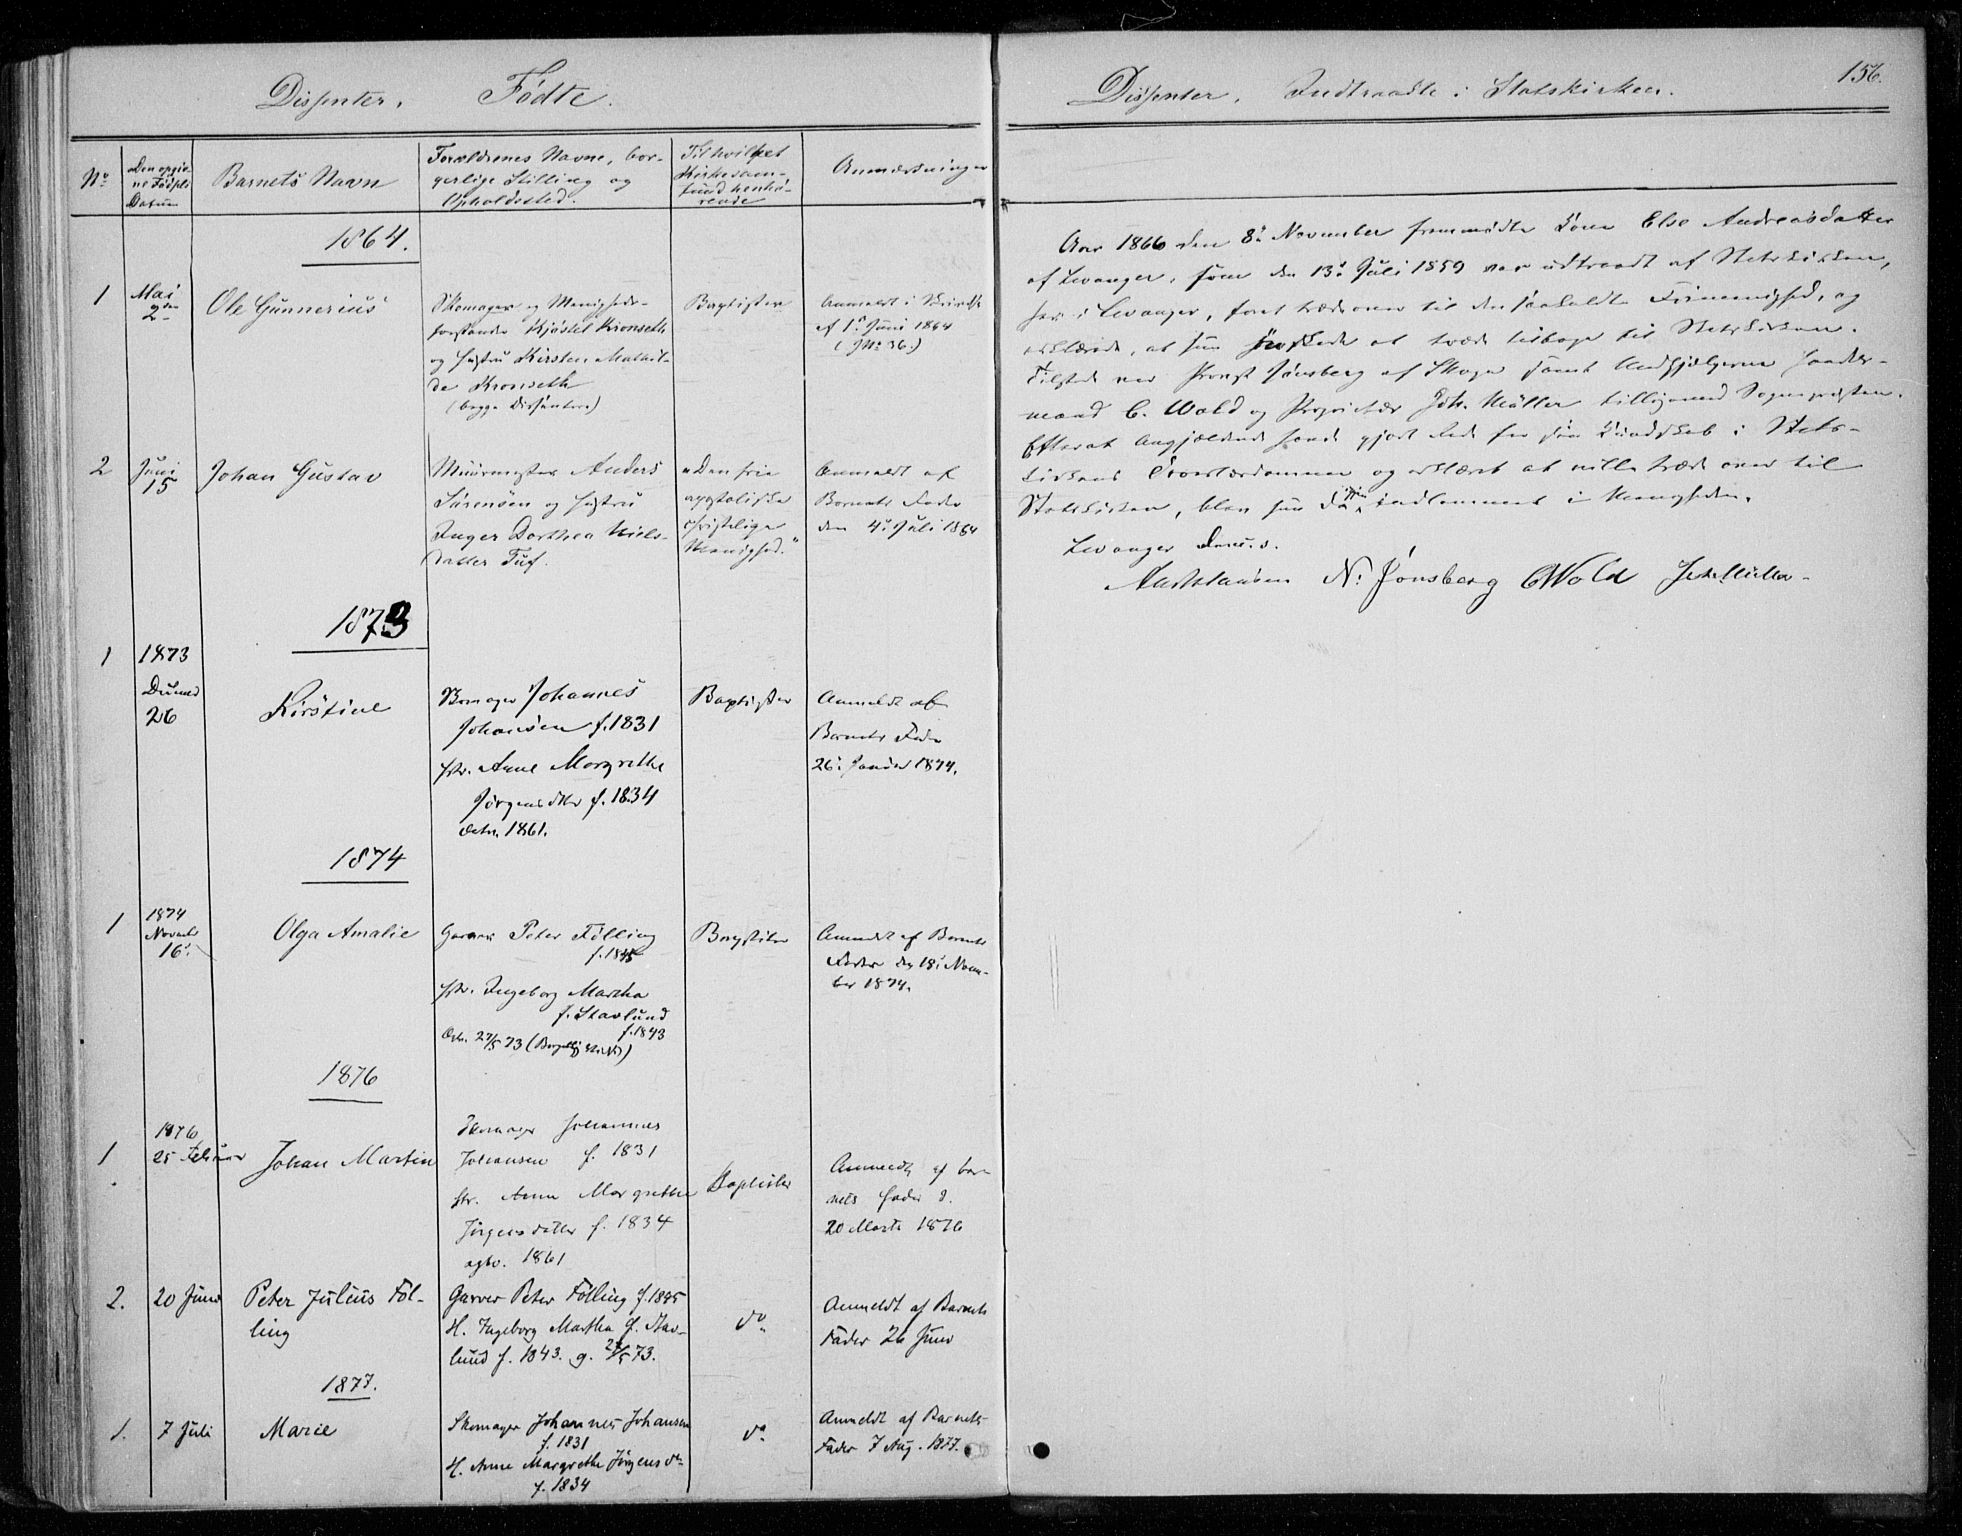 Dissenter. Födte.
No
Den opgiv-
ne Födsels
Datum
Barnets Navn
Forældrenes Navne, bor-
gerlige Stilling og
Opholdssted.
Til hvilket
Kirkesam-
fund henhö-
rende
Anmærkninger
1864.
1
Mai
2den
Ole Gunnerius
Skomager og Menigheds-
forstander Kjöstel Kronseth
og Hustru Kirsten Mathil-
de Kronseth
(begge Dissentere)
Baptister
Anmeldt i Skrivelse
af 1ste Juni 1864
(JNo 36.)
2
Juni
15
Johan Gustav
Muurmester Anders
Sörensen og Hustru
Inger Dorthea Niels-
datter Tuf.
"Den frie
apostoliske
christelige
Menighed."
Anmeldt af
Barnets Fader
den 4de Juli 1864
1873
1
1873
26
Kirstine
Skomager Johannes
Johansen f. 1831
Hstr. Anne Margrethe
Jörgensdtr f. 1834
1861.
Baptister
Anmeldt af
Barnets Fader
26. Januar 1874.
1874
1
1874
Novembr
16.
Olga Amalie
Garver Peter Fölling
f. 1845
Hstr. Ingeborg Martha
f. Stavlund
f. 1843
27/5 73
Baptister
Anmeldt af Barnets
Fader den 18. Novem-
ber 1874.
1876
1
1876
25 Februar
Johan Martin
Skomager Johannes
Johansen f. 1831
Hstr. Anne Margrethe
Jörgensdatter f. 1834
1861
Baptister
Anmeldt af bar-
nets fader d.
20 Marts 1876
2.
20 Juni
Peter Julius Föl-
ling
Garver Peter Fölling f. 1845
H. Ingeborg Martha f. Stav-
lund f. 1843. g. 27/5 73.
do
Anmeldt af Barnets
Fader 26 Juni
1877.
1.
7 Juli
Marie
Skomager Johannes Johansen
f. 1831
H. Anne Margrethe Jörgensdr
f. 1834
do
Anmeldt af Barnets
Fader 7 Aug. 1877.
156.
Dissenter. Indtraadte i Statskirken.
Aar 1866 den 8de November fremmödte Kone Else Andreasdatter
af Levanger, som den 13de Juli 1859 var udtraadt af Statskirken,
her i Levanger, for at træde over til den saakaldte Frimenighed, og
erklærede, at hun önskede at træde tilbage til Statskirken.
Tilstede var Provst Jönsberg af Skogn samt Medhjælperne Handels-
mand C. Wold og Proprietær Joh. Müller tilligemed Sognepresten.
Efterat Angjældende havde gjort Rede for sin Kundskab i Stats-
kirkens Troeslærdomme og erklæret at ville træde over til
Statskirken, blev hun indlemmet i Menigheden.
Levanger
N. Jönsberg CWold Joh. Müller